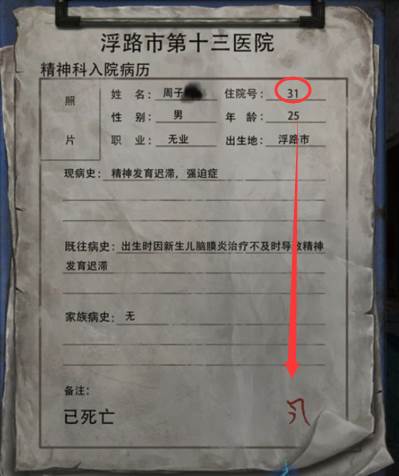 浮路市第十三医院
精神科入院病历
照片
姓 名：周子 住院号：31
性 别：男 年 龄：25
职 业：无业 出生地：浮路市
现病史：精神发育迟滞，强迫症
既往病史：出生时因新生儿脑膜炎治疗不及时导致精神
发育迟滞
家族病史：无
备注：
已死亡